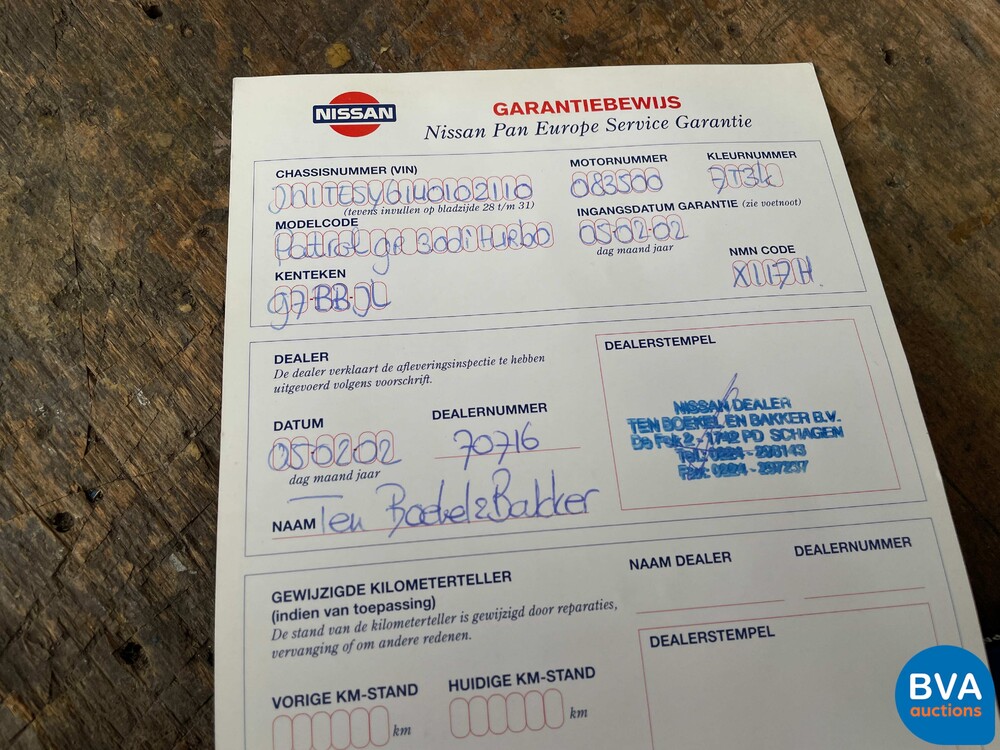 NISSAN
GARANTIEBEWIJS
Nissan Pan Europe Service Garantie
CHASSISNUMMER (VIN)
MOTORNUMMER
KLEURNUMMER
JN1TESY61U0102110
083500
7T3k
(tevens invullen op bladzijde 28 t/m 31)
MODELCODE
INGANGSDATUM GARANTIE (zie voetnoot)
Patrol gr 30di turbo
05-02-02
dag maand jaar
KENTEKEN
NMN CODE
97-BB-JL
X117H
DEALER
De dealer verklaart de afleveringsinspectie te hebben
uitgevoerd volgens voorschrift.
DEALERSTEMPEL
DATUM
DEALERNUMMER
05-02-02
70716
dag maand jaar
NAAM Ten Boekel & Bakker
NISSAN DEALER
TEN BOEKEL EN BAKKER B.V.
De Fok 2 - 1742 PD SCHAGEN
Tel.: 0224 - 296143
Fax: 0224 - 297237
GEWIJZIGDE KILOMETERTELLER
(indien van toepassing)
De stand van de kilometerteller is gewijzigd door reparaties,
vervanging of om andere redenen.
NAAM DEALER
DEALERNUMMER
DEALERSTEMPEL
VORIGE KM-STAND
HUIDIGE KM-STAND
km
km
BVA
auctions